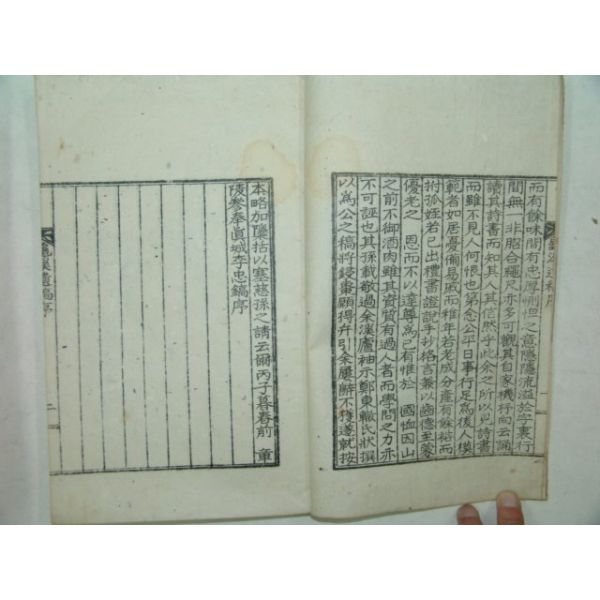 而有餘味間有忠厚惻怛之意隱隱流溢於言表行
間無一非脗合繩尺亦多可觀其自家機杼向云誦
讀其詩書而知其人其信然乎此余之所以見詩書
而雖不見人何恨也第念公平日事行足為後人模
範者如居憂備易戚而稚年若老成分產有餘拮而
拊孤姪若已出禮書證說手抄格言兼以齒德至蒙
優老之 恩而不以達尊為已有惟於 國恤因山
之前不御酒肉雖其資質有過人者而學問之力亦
不可誣也其孫載敬過余溪廬袖示鄭東轍氏狀撰
以為公之稿將鋟棗願得弁引余屢辭不獲遂就按
本略加檃括以塞慈孫之請云爾丙子暮春前 童
陵參奉眞城李忠鎬序
遺稿序
一
遺稿序
二